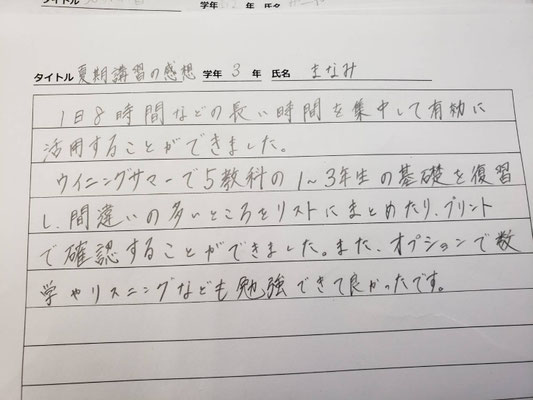 タイトル 学年 年 氏名
タイトル 夏期講習の感想 学年 3 年 氏名 まなみ
1日8時間などの長い時間を集中して有効に
活用することができました。
ウイニングサマーで5教科の1〜3年生の基礎を復習
し、間違いの多いところをリストにまとめたり、プリント
で確認することができました。また、オプションで数
学やリスニングなども勉強できて良かったです。